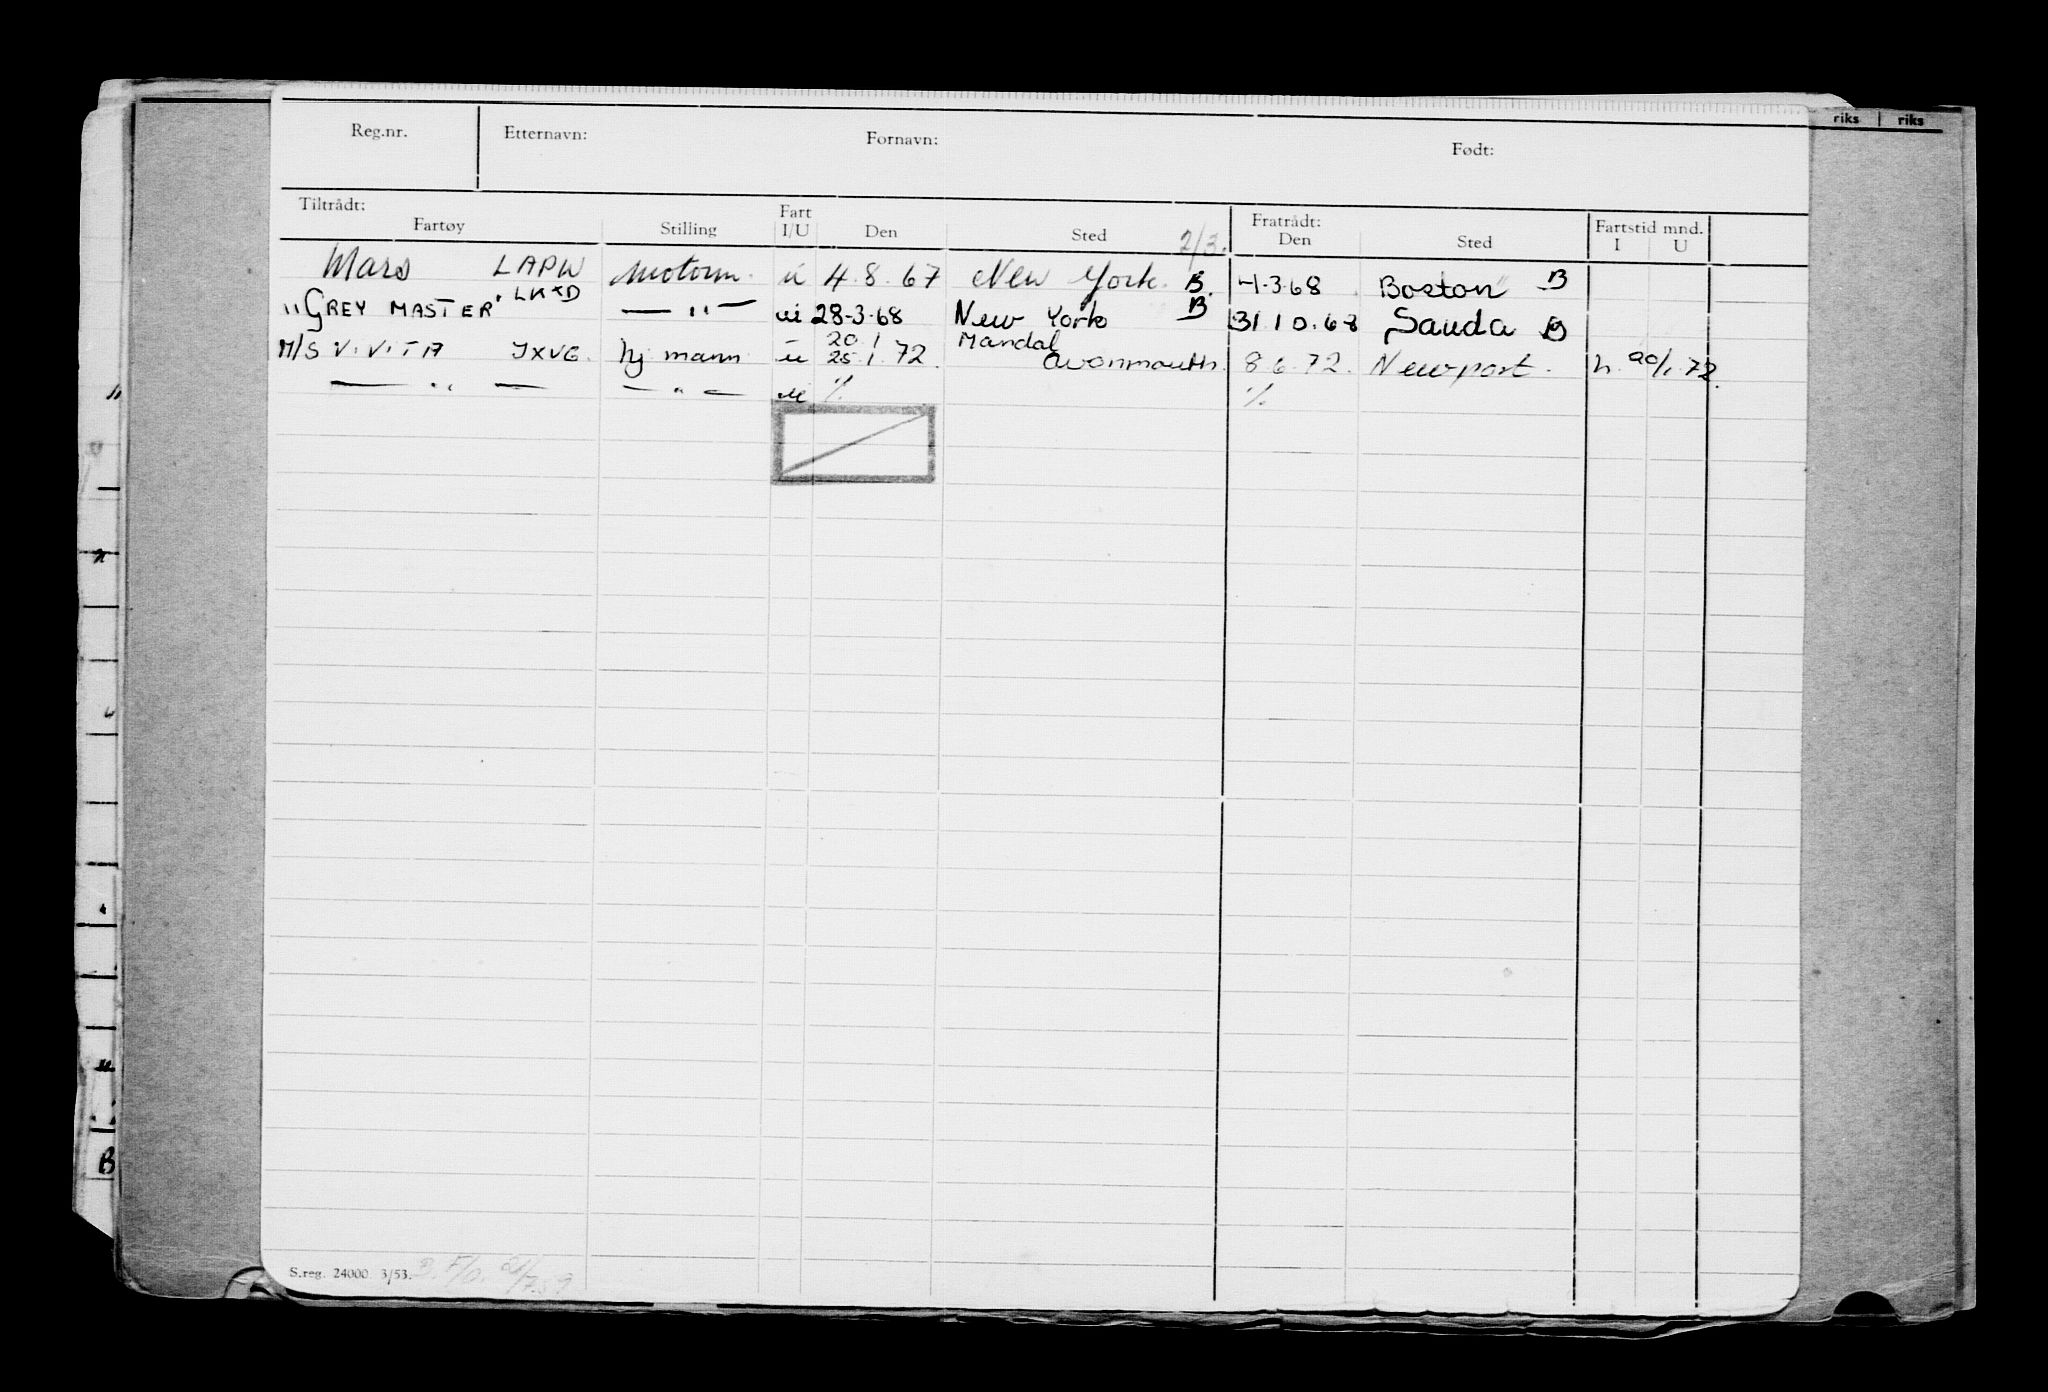 riks | riks
Reg.nr. Etternavn: Fornavn: Født:
Tiltrådt: Fratrådt:
Fartøy Stilling Fart I/U Den Sted 2/3. Den Sted Fartstid mnd. I U
Mars LAPW motorm. u 4.8.67 New York. B. 4-3.68 Boston B
"GREY MASTER" — " — ui 28-3-68 New York B 31.10.68 Sauda B
20.1 Mandal
M/S V.V.T.A JXVG. hj mann u 25.1.72. Avonmouth. 8.6.72. Newport. h. 20/1.72.
— " — — " — ui % %
S.reg. 24000 3/53.
B